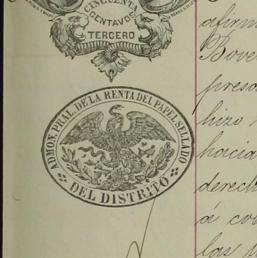 CINCUENTA
CENTAVOS
TERCERO
ADMOR. PRAL. DE LA RENTA DEL PAPEL SELLADO
DEL DISTRITO
afirm
Bove
presa
hizo
hacia
derech
á co
las